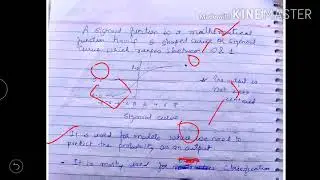 Made with KINEMASTER
A sigmoid function is a mathematical
function having S shaped curve or sigmoid
curve which ranges between 0 & 1
output is
not zero
centered
Sigmoid curve
It is used for models where we need to
predict the probability as an output.
It is mostly used for classification